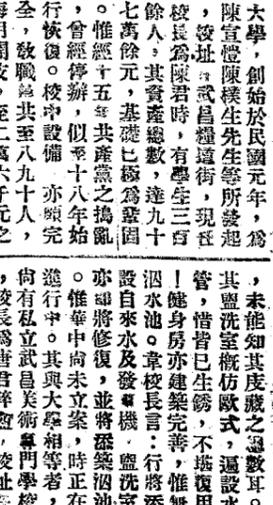 大學，創始於民國元年，爲
陳宣愷陳樸生先生等所發起
，校址武昌糧道街，現任
校長爲陳君時，有學生三百
餘人，其資產總數，達九十
七萬餘元，基礎已極爲鞏固
。惟經十五年共產黨之搗亂
，曾經停辦，似至十八年始
行恢復。校中設備　亦頗完
全，敎職員共至八九十人，
每月開支，至二萬六千元之
，未能知其庋藏之總數耳。
其盥洗室概仿歐式，遍設水
管，惜皆已生銹，不堪復用
！健身房亦建築完善，惟無
泅水池。韋校長言：行將添
設自來水及發電機，盥洗室
亦將修復，並將添築泅池
。惟華中尚未立案，時正在
進行中。其與大學相等者，
尚有私立武昌美術專門學校
，校長爲唐君醉石，校址